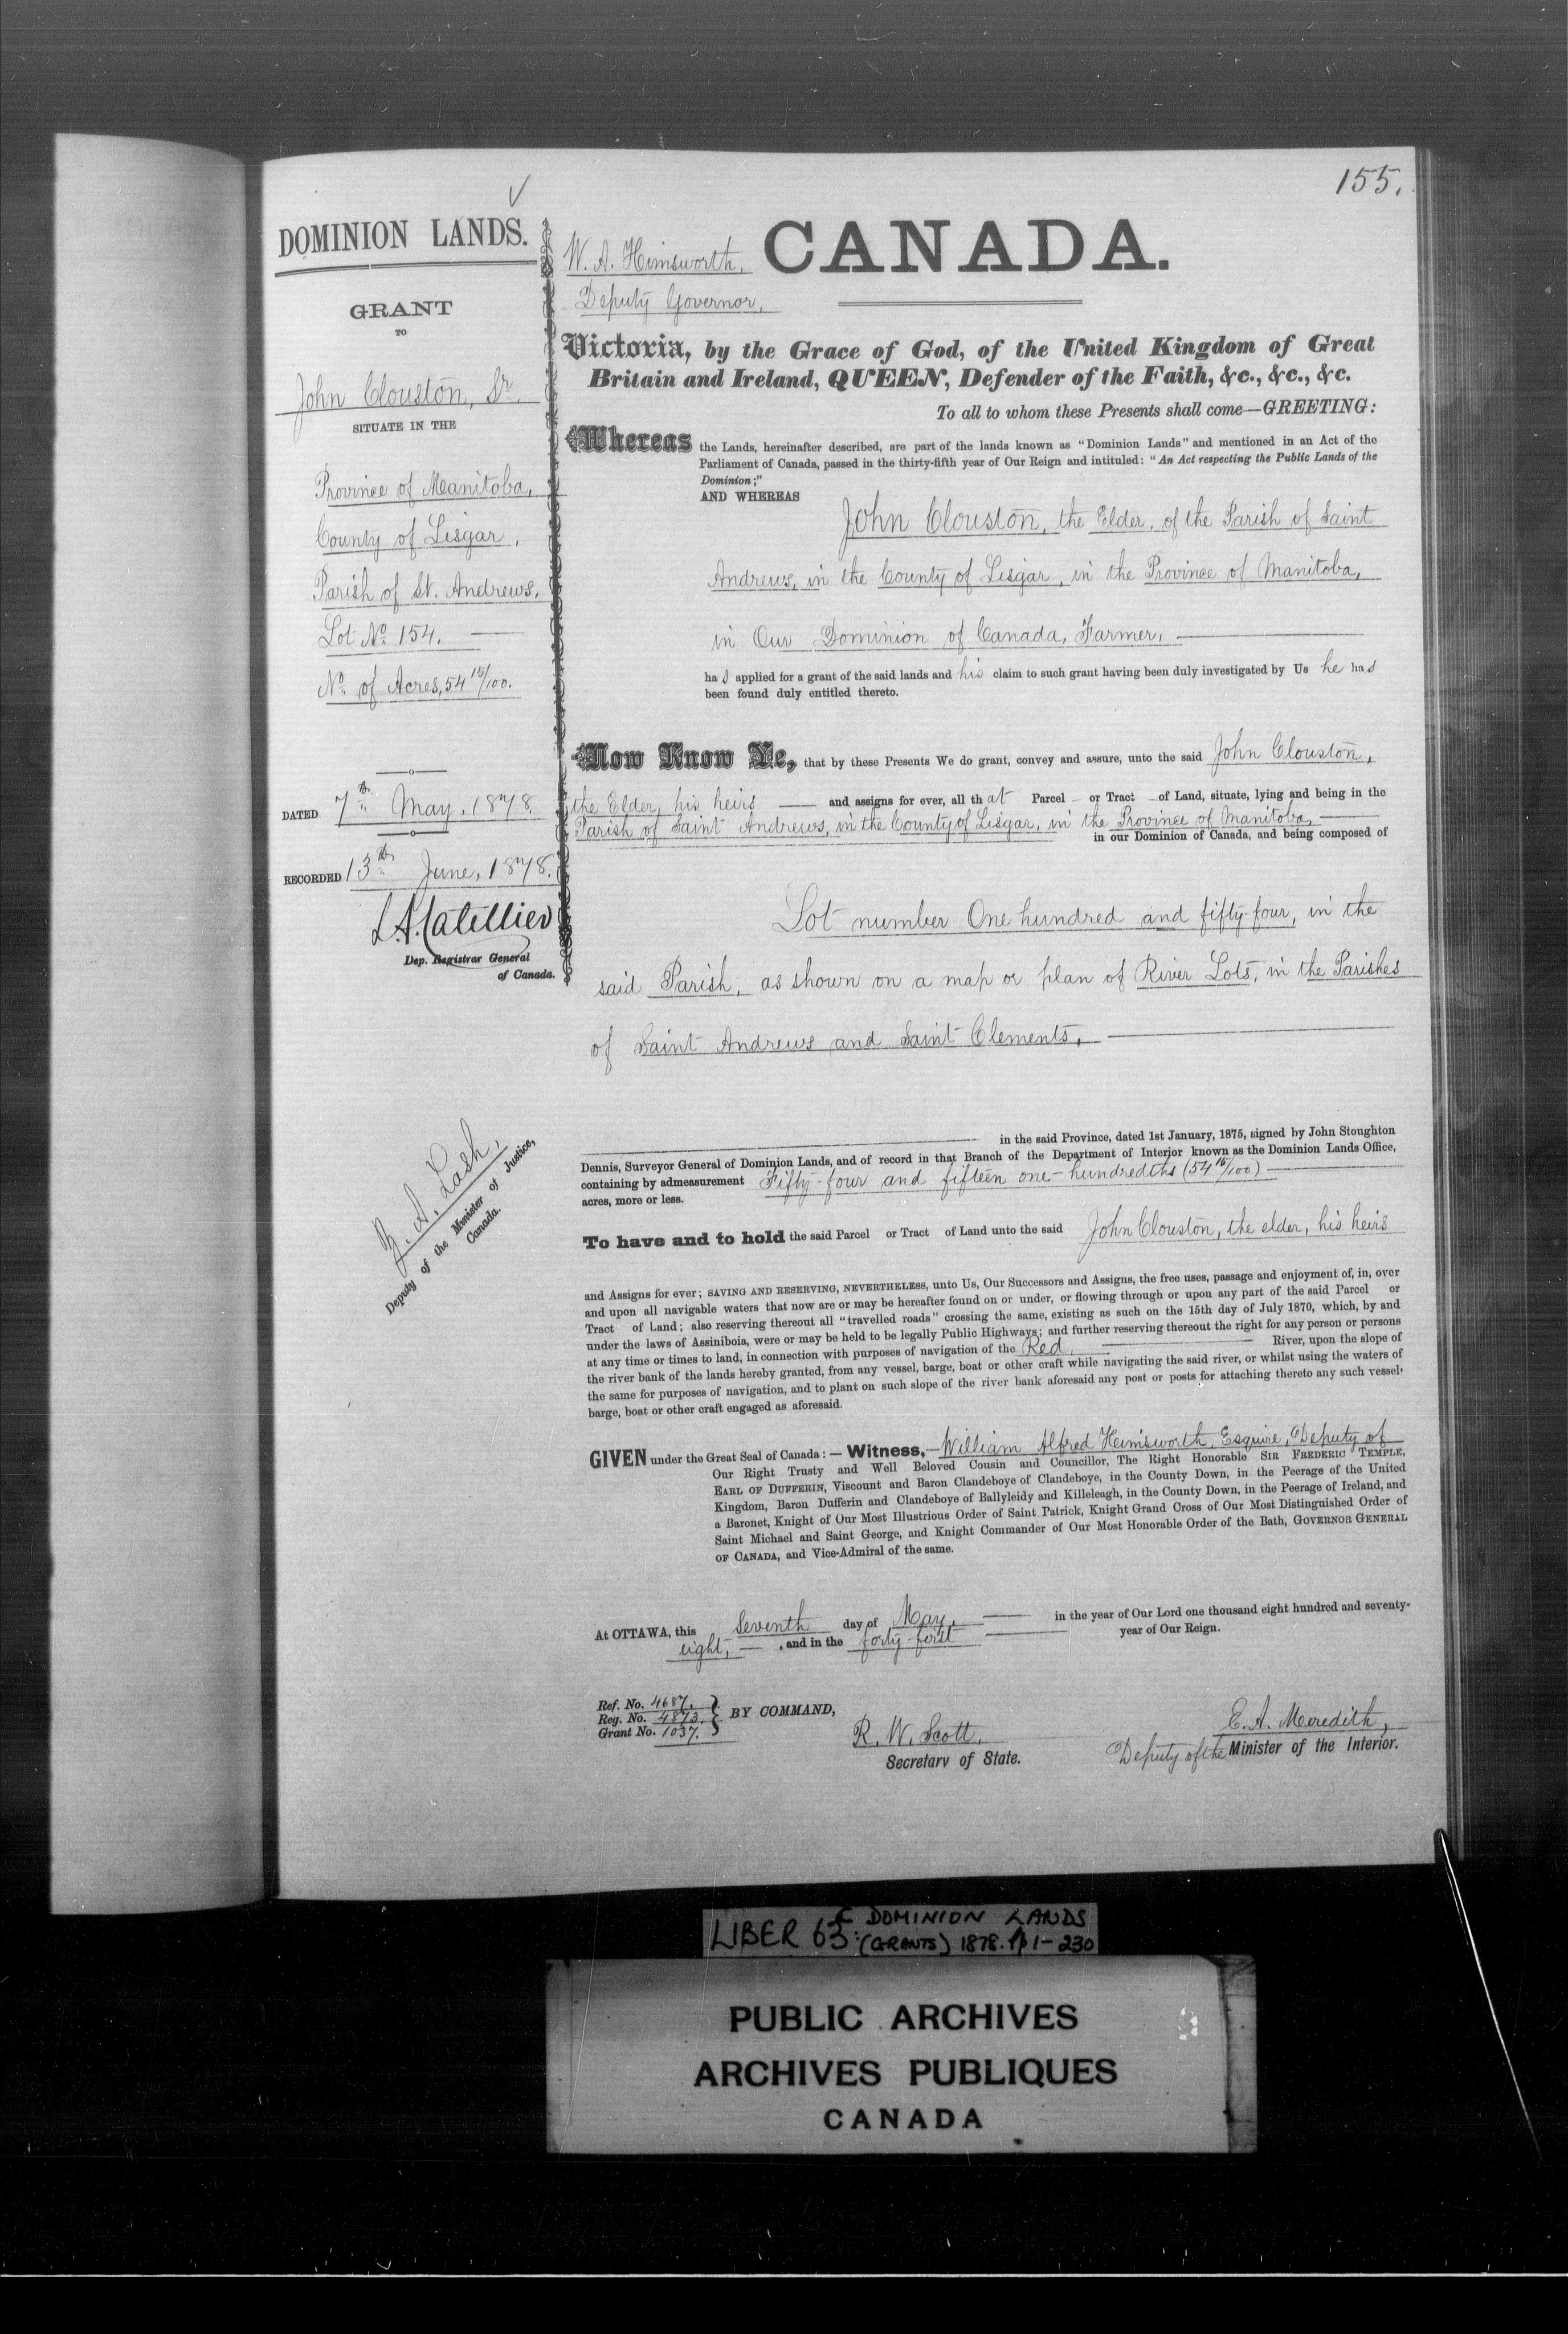 155.
DOMINION LANDS.
GRANT
TO
John Clouston, Sr.
SITUATE IN THE
Province of Manitoba,
County of Lisgar,
Parish of St. Andrews,
Lot No. 154.
No. of Acres, 54 15/100.
DATED 7th May, 1878.
RECORDED 13th June, 1878.
L.A. Catellier
Dep. Registrar General
of Canada.
Z. A. Lash,
Deputy of the Minister of Justice,
Canada.
W. A. Himsworth,
Deputy Governor,
CANADA.
Victoria, by the Grace of God, of the United Kingdom of Great
Britain and Ireland, QUEEN, Defender of the Faith, &c., &c., &c.
To all to whom these Presents shall come—GREETING:
Whereas the Lands, hereinafter described, are part of the lands known as "Dominion Lands" and mentioned in an Act of the
Parliament of Canada, passed in the thirty-fifth year of Our Reign and intituled: "An Act respecting the Public Lands of the
Dominion;"
AND WHEREAS
John Clouston, the Elder, of the Parish of Saint
Andrews, in the County of Lisgar, in the Province of Manitoba,
in Our Dominion of Canada, Farmer,
has applied for a grant of the said lands and his claim to such grant having been duly investigated by Us he has
been found duly entitled thereto.
Now Know Ye, that by these Presents We do grant, convey and assure, unto the said John Clouston,
the Elder, his heirs and assigns for ever, all that Parcel or Tract of Land, situate, lying and being in the
Parish of Saint Andrews, in the County of Lisgar, in the Province of Manitoba,
in our Dominion of Canada, and being composed of
Lot number One hundred and fifty-four, in the
said Parish, as shown on a map or plan of River Lots, in the Parishes
of Saint Andrews and Saint Clements,
in the said Province, dated 1st January, 1875, signed by John Stoughton
Dennis, Surveyor General of Dominion Lands, and of record in that Branch of the Department of Interior known as the Dominion Lands Office,
containing by admeasurement Fifty-four and fifteen one-hundredths (54 15/100)
acres, more or less.
To have and to hold the said Parcel or Tract of Land unto the said John Clouston, the elder, his heirs
and Assigns for ever; SAVING AND RESERVING, NEVERTHELESS, unto Us, Our Successors and Assigns, the free uses, passage and enjoyment of, in, over
and upon all navigable waters that now are or may be hereafter found on or under, or flowing through or upon any part of the said Parcel or
Tract of Land; also reserving thereout all "travelled roads" crossing the same, existing as such on the 15th day of July 1870, which, by and
under the laws of Assiniboia, were or may be held to be legally Public Highways; and further reserving thereout the right for any person or persons
at any time or times to land, in connection with purposes of navigation of the Red, River, upon the slope of
the river bank of the lands hereby granted, from any vessel, barge, boat or other craft while navigating the said river, or whilst using the waters of
the same for purposes of navigation, and to plant on such slope of the river bank aforesaid any post or posts for attaching thereto any such vessel,
barge, boat or other craft engaged as aforesaid.
GIVEN under the Great Seal of Canada:— Witness,— William Alfred Himsworth, Esquire, Deputy of
Our Right Trusty and Well Beloved Cousin and Councillor, The Right Honorable SIR FREDERIC TEMPLE,
EARL OF DUFFERIN, Viscount and Baron Clandeboye of Clandeboye, in the County Down, in the Peerage of the United
Kingdom, Baron Dufferin and Clandeboye of Ballyleidy and Killeleagh, in the County Down, in the Peerage of Ireland, and
a Baronet, Knight of Our Most Illustrious Order of Saint Patrick, Knight Grand Cross of Our Most Distinguished Order of
Saint Michael and Saint George, and Knight Commander of Our Most Honorable Order of the Bath, GOVERNOR GENERAL
OF CANADA, and Vice-Admiral of the same.
At OTTAWA, this Seventh day of May, in the year of Our Lord one thousand eight hundred and seventy-
eight, , and in the forty-first year of Our Reign.
Ref. No. 4687.
Reg. No. 4873.
Grant No. 1037.
BY COMMAND,
R. W. Scott,
Secretary of State.
E. A. Meredith,
Deputy of the Minister of the Interior.
LIBER 63: C DOMINION LANDS
(GRANTS) 1878. pp 1-230
PUBLIC ARCHIVES
ARCHIVES PUBLIQUES
CANADA